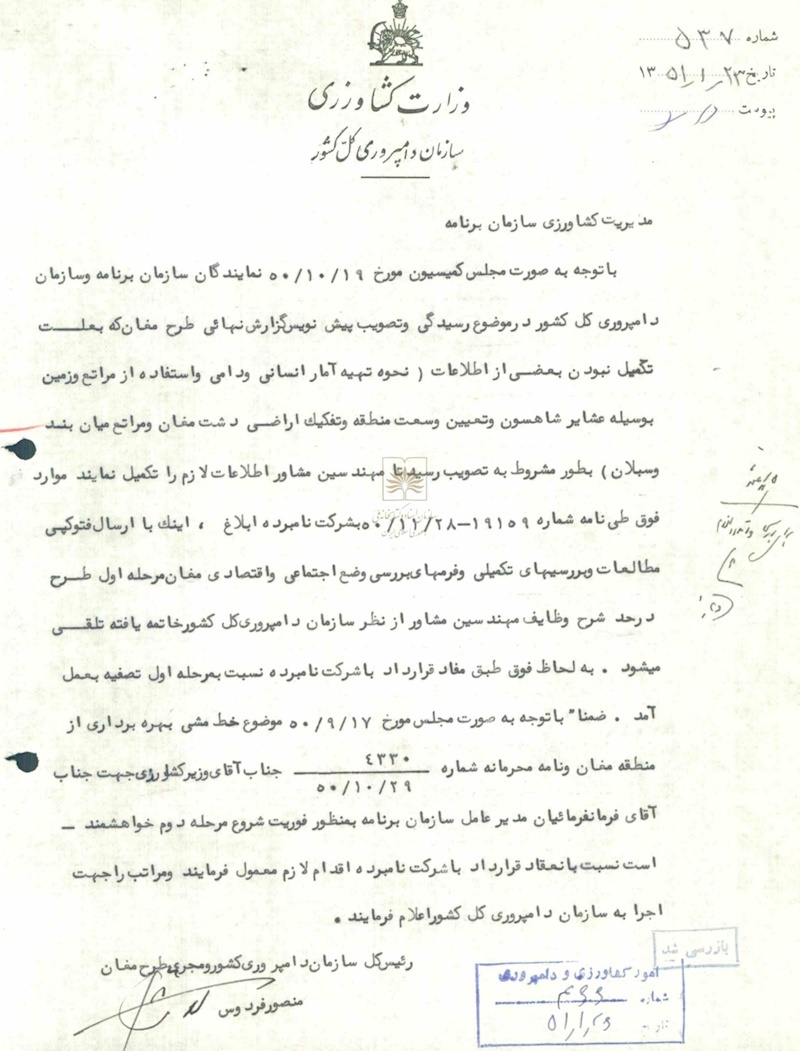 شماره ۵۳۷
تاریخ ۲۳/۱/۱۳۵۱
پیوست
وزارت کشاورزی
سازمان دامپروری کل کشور
مدیریت کشاورزی سازمان برنامه
باتوجه به صورت مجلس کمیسیون مورخ ۵۰/۱۰/۱۹ نمایندگان سازمان برنامه وسازمان
دامپروری کل کشور درموضوع رسیدگی وتصویب پیش نویس گزارش نهائی طرح مغان که بعلت
تکمیل نبودن بعضی از اطلاعات ( نحوه تهیه آمار انسانی ودامی واستفاده از مراتع وزمین
بوسیله عشایر شاهسون وتعیین وسعت منطقه وتفکیک اراضی دشت مغان ومراتع میان بند
وسبلان ) بطور مشروط به تصویب رسید تا مهندسین مشاور اطلاعات لازم را تکمیل نمایند موارد
فوق طی نامه شماره ۱۹۱۵۹-۵۰/۱۱/۲۸ بشرکت نامبرده ابلاغ ، اینک با ارسال فتوکپی
مطالعات وبررسیهای تکمیلی وفرمهای بررسی وضع اجتماعی واقتصادی مغان مرحله اول طرح
درحد شرح وظایف مهندسین مشاور از نظر سازمان دامپروری کل کشور خاتمه یافته تلقی
میشود . به لحاظ فوق طبق مفاد قرارداد باشرکت نامبرده نسبت بمرحله اول تصفیه بعمل
آمد . ضمنا" باتوجه به صورت مجلس مورخ ۵۰/۹/۱۷ موضوع خط مشی بهره برداری از
منطقه مغان ونامه محرمانه شماره ۴۳۳۰ ۵۰/۱۰/۲۹ جناب آقای وزیر کشاورزی جهت جناب
آقای فرمانفرمائیان مدیر عامل سازمان برنامه بمنظور فوریت شروع مرحله دوم خواهشمند –
است نسبت بانعقاد قرارداد باشرکت نامبرده اقدام لازم معمول فرمایند ومراتب راجهت
اجرا به سازمان دامپروری کل کشور اعلام فرمایند .
رئیس کل سازمان دامپروری کشور ومجری طرح مغان
منصور فردوس
بازرسی شد
امور کشاورزی و دامپروری
شماره
تاریخ